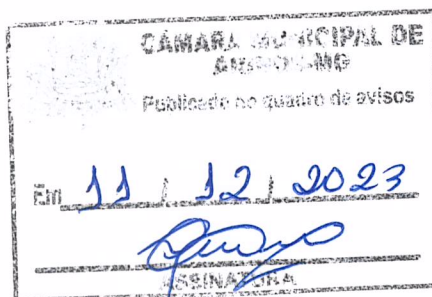 CÂMARA MUNICIPAL DE
MG
Publicado no quadro de avisos
Em 11 / 12 / 2023
ASSINATURA